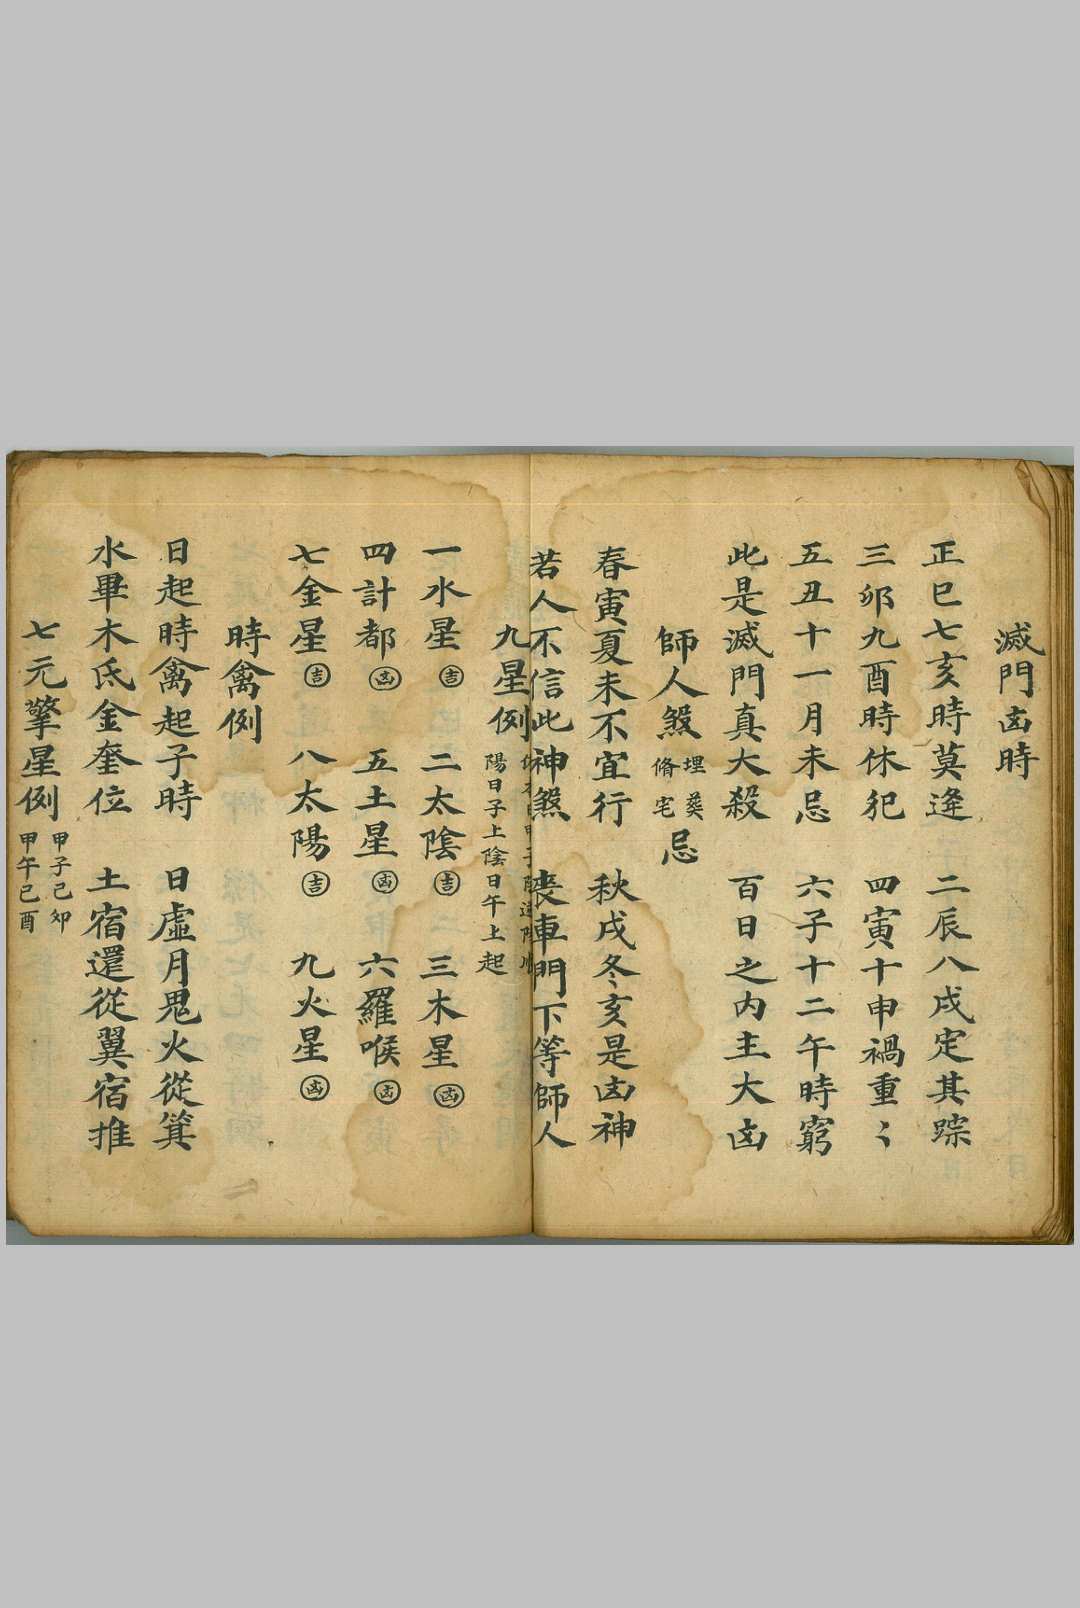 滅門凶時
正巳七亥時莫逢 二辰八戌定其踪
三卯九酉時休犯 四寅十申禍重〻
五丑十一月未忌 六子十二午時窮
此是滅門真大殺 百日之內主大凶
師人煞 埋葬 脩宅 忌
春寅夏未不宜行 秋戌冬亥是凶神
若人不信此神煞 喪車門下等師人
九星例
陽日子上陰日午上起
一水星 吉 二太陰 吉 三木星 凶
四計都 凶 五土星 凶 六羅喉 凶
七金星 吉 八太陽 吉 九火星 凶
時禽例
日起時禽起子時 日虛月鬼火從箕
水畢木氐金奎位 土宿還從翼宿推
七元擎星例 甲子己卯 甲午己酉